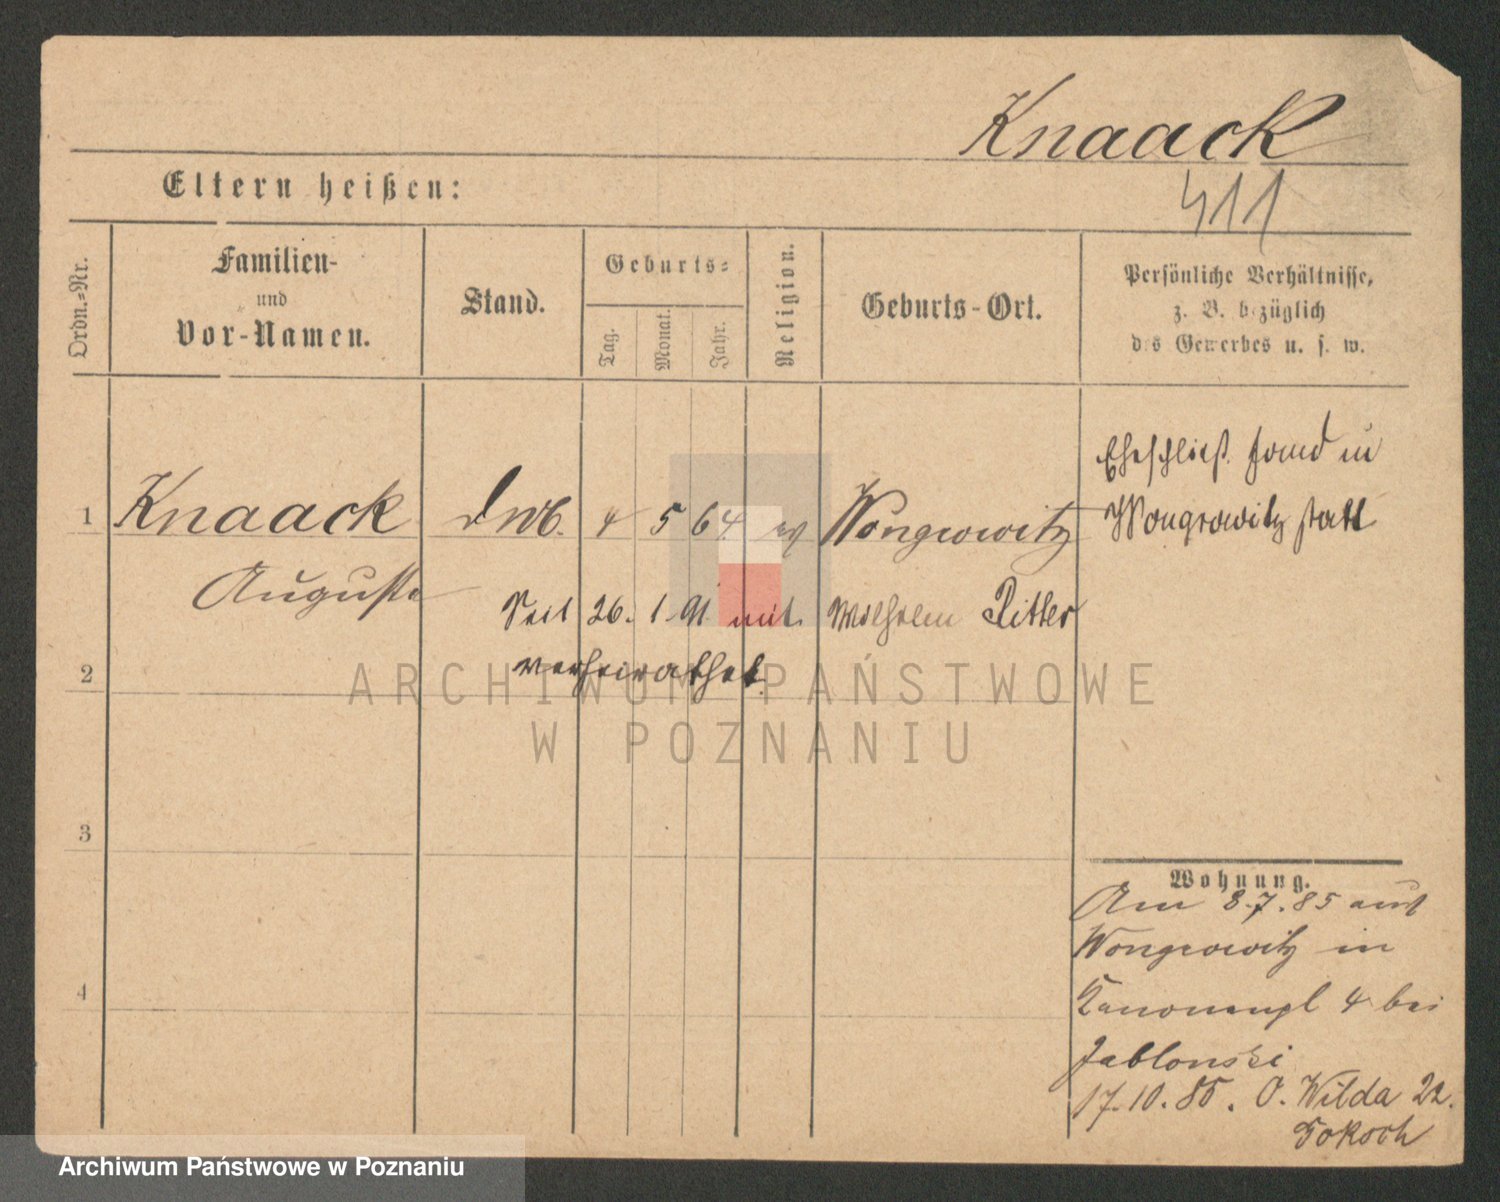 Knaack
411
Eltern heißen:
Ordn.-Nr.
Familien-
und
Vor-Namen.
Stand.
Geburts-
Tag.
Monat.
Jahr.
Religion.
Geburts-Ort.
Persönliche Verhältnisse,
z. B. bezüglich
des Gewerbes u. s. w.
1 Knaack 4 5 64 ev Wongrowitz
Auguste
Eheschließ. fand in
Wongrowitz statt
Seit 26. 1. 91 mit Wilhelm Ritter
verheirathet.
2
3
4
Wohnung.
Am 8.7.85 aus
Wongrowitz in
Kanonenpl 4 bei
Jablonski
17.10.85. O. Wilda 22.
ARCHIWUM PAŃSTWOWE
W POZNANIU
Archiwum Państwowe w Poznaniu